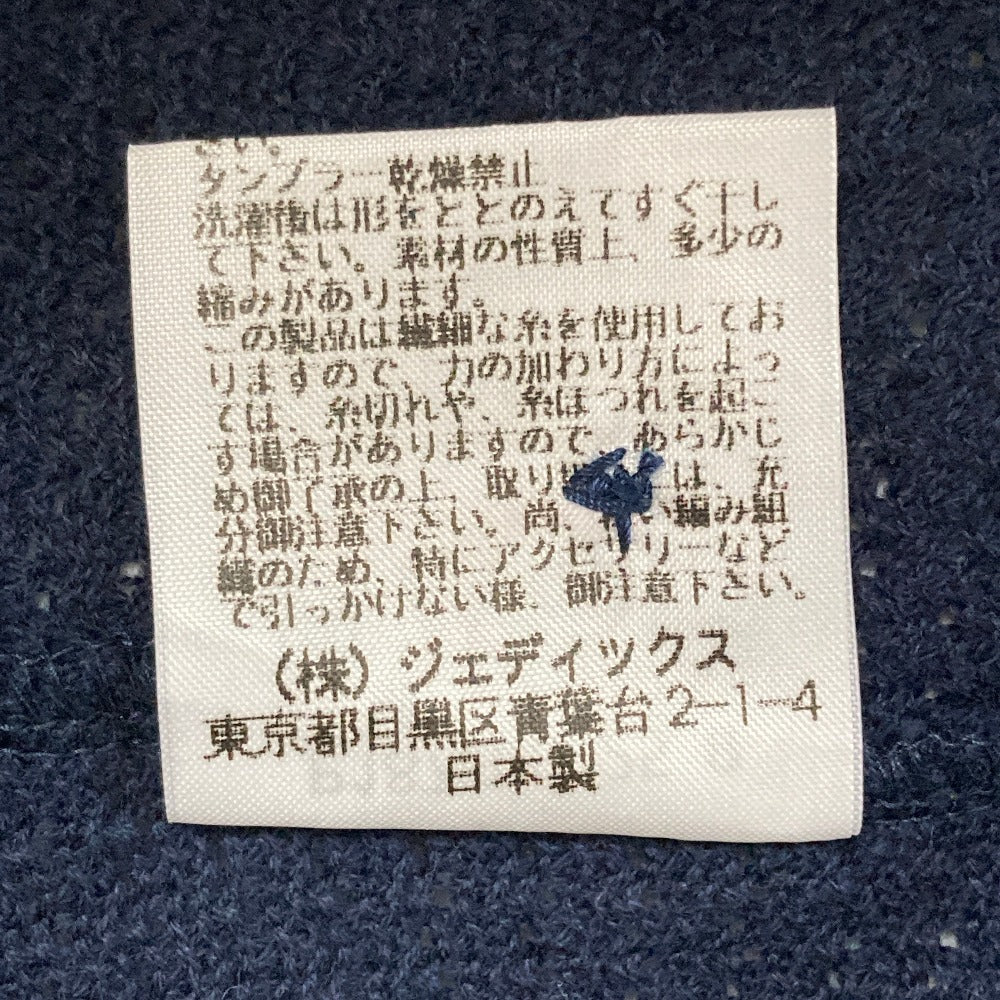 さい。
タンブラー乾燥禁止
洗濯後は形をととのえてすぐ干し
て下さい。素材の性質上、多少の
縮みがあります。
この製品は繊細な糸を使用してお
りますので、力の加わり方によっ
ては、糸切れや、糸ほつれを起こ
す場合がありますので、あらかじ
め御了承の上、取り は、充
分御注意下さい。尚、 い編み組
織のため、特にアクセサリーなど
で引っかけない様、御注意下さい。
(株)ジェディックス
東京都目黒区青葉台2-1-4
日本製